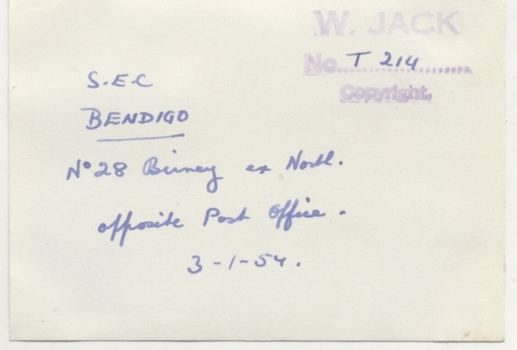 W. JACK
No. T 214
Copyright.
S.E.C
BENDIGO
No 28 Birney ex North.
opposite Post Office.
3-1-54.